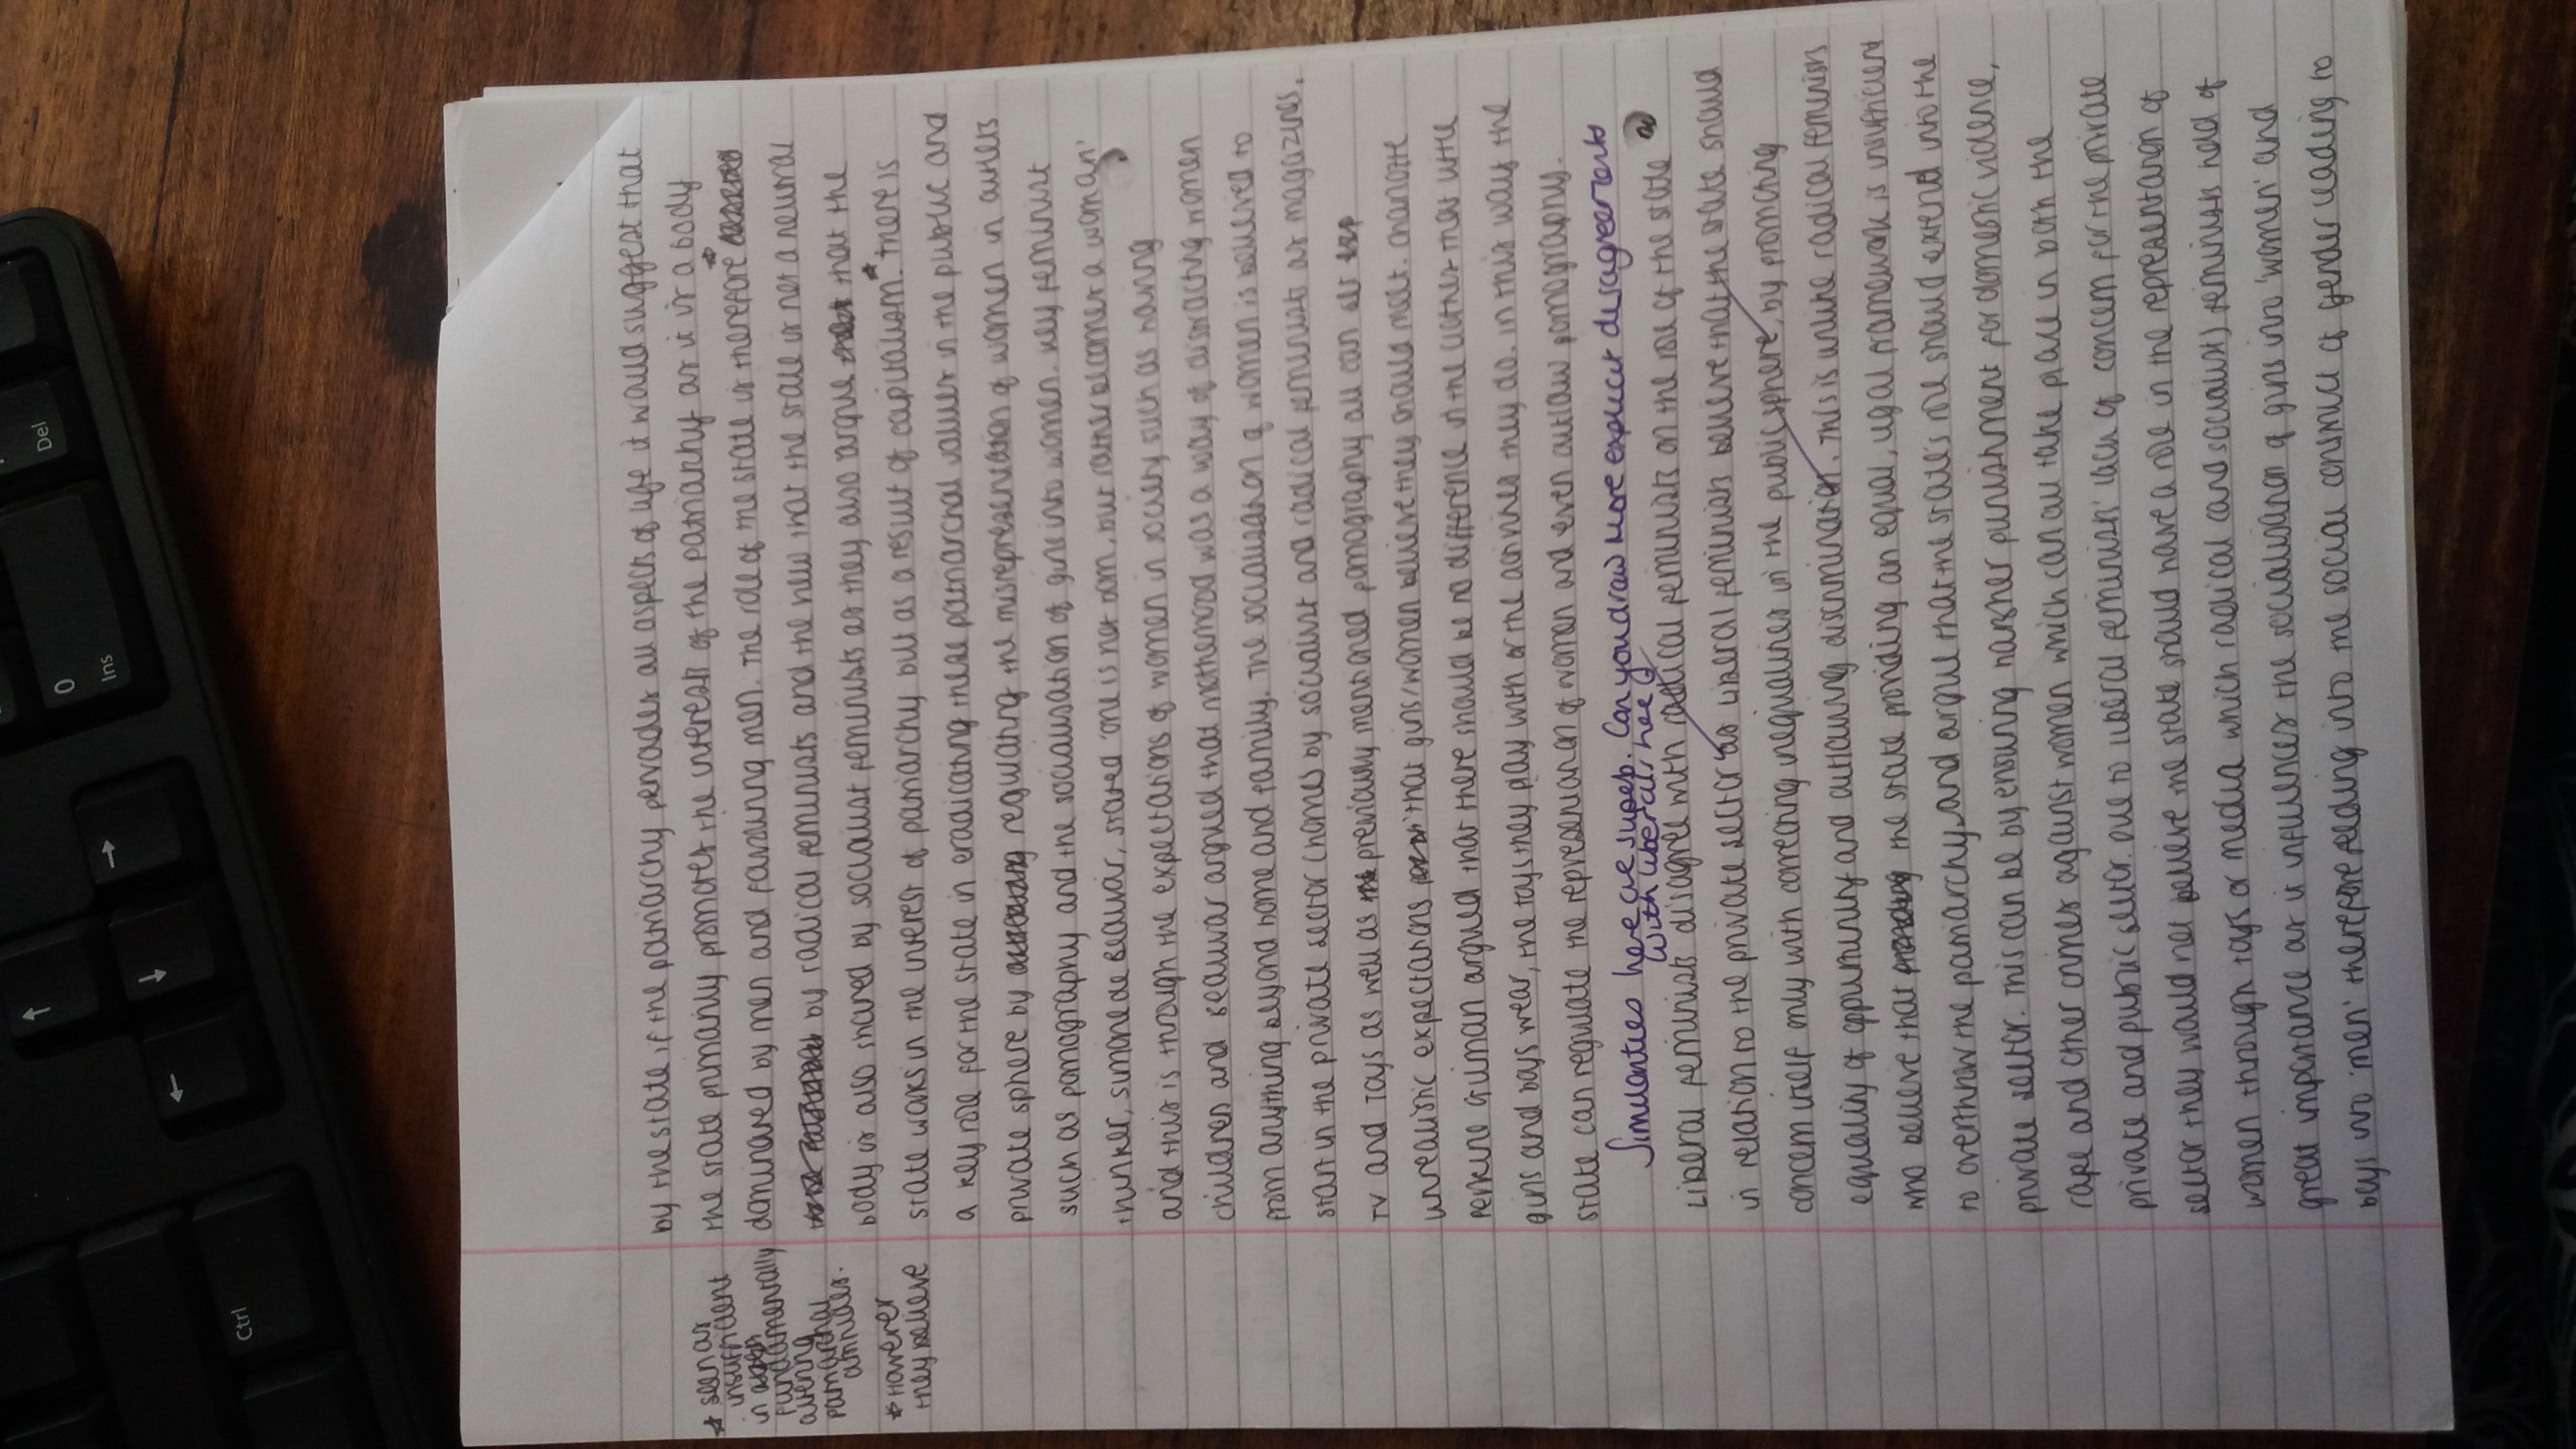 by the state if the patriarchy pervades all aspects of life it would suggest that
the state primarily promotes the interests of the patriarchy as it is a body
dominated by men and favouring men. The role of the state is therefore *
by radical feminists and the view that the state is not a neutral
body is also shared by socialist feminists as they also argue that the
state works in the interest of patriarchy but as a result of capitalism. * there is
a key role for the state in eradicating these patriarchal values in the public and
private sphere by regulating the misrepresentation of women in outlets
such as pornography and the socialisation of girls into women. Key feminist
thinker, Simone de Beauvoir, stated 'one is not born, but rather becomes a woman'
and this is through the expectations of women in society such as having
children and Beauvoir argued that motherhood was a way of distracting women
from anything beyond home and family. The socialisation of women is believed to
start in the private sector (homes) by socialist and radical feminists as magazines,
TV and toys as well as previously mentioned pornography all can
unrealistic expectations that girls/women believe they should meet. Charlotte
Perkins Gilman argued that there should be no difference in the clothes that little
girls and boys wear, the toys they play with or the activities they do. In this way the
state can regulate the representation of women and even outlaw pornography.
Similarities here are superb. Can you draw more explicit disagreements
with liberals here?
Liberal feminists disagree with radical feminists on the role of the state
in relation to the private sector as liberal feminists believe that the state should
concern itself only with correcting inequalities in the public sphere, by promoting
equality of opportunity and outlawing discrimination. This is unlike radical feminists
who believe that the state providing an equal, legal framework is insufficient
to overthrow the patriarchy and argue that the state's role should extend into the
private sector. This can be by ensuring harsher punishment for domestic violence,
rape and other crimes against women which can all take place in both the
private and public sector. Due to liberal feminists' lack of concern for the private
sector they would not believe the state should have a role in the representation of
women through toys or media which radical (and socialist) feminists hold of
great importance as it influences the socialisation of girls into 'women' and
boys into 'men' therefore feeding into the social construct of gender leading to
* seen as
insufficient
in
fundamentally
altering
patriarchal
attitudes.
* However
they believe
Del
0
Ins
Ctrl